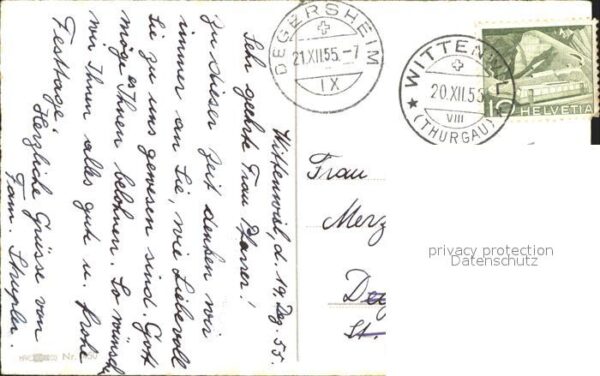 Wittenwil, d. 19. Dez. 55.
Sehr geehrte Frau Pfarrer!
Zu dieser Zeit denken wir
immer an Sie, wie Liebevoll
Sie zu uns gewesen sind. Gott
möge es Ihnen belohnen. So wünschen
wir Ihnen alles gute u. frohe
Festtage.
Herzliche Grüsse von
Fam.
DEGERSHEIM
21.XII.55.-7
IX
WITTENWIL
20.XII.55
VIII
(THURGAU)
10 HELVETIA
Frau
Merz
Deg
St.
privacy protection
Datenschutz
Nr.